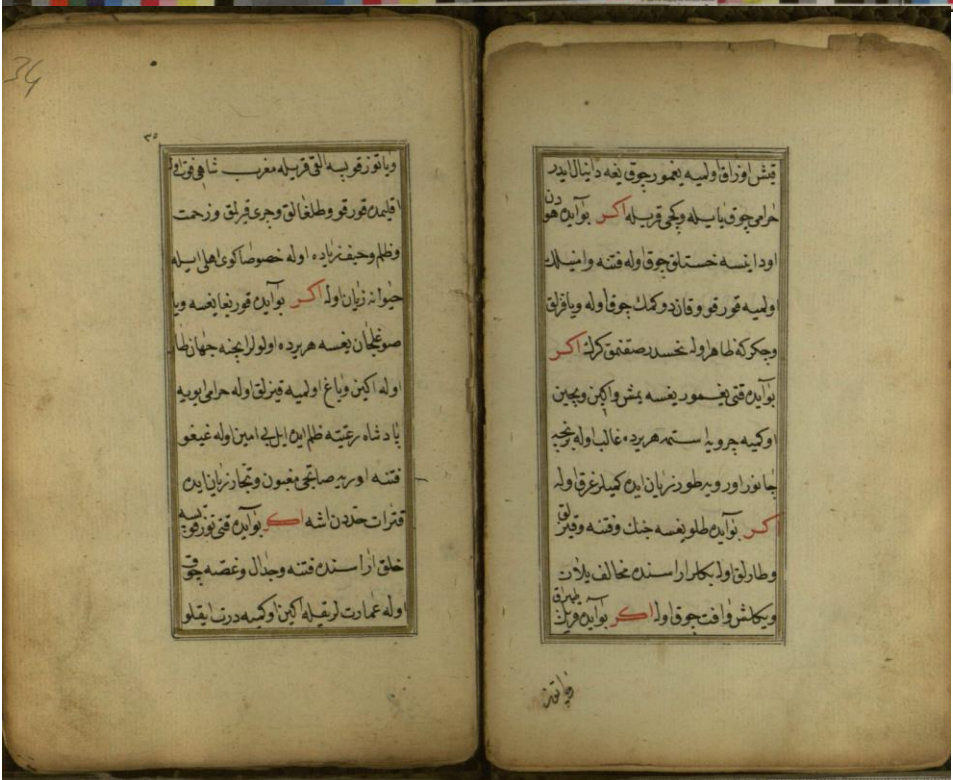 قیش اوزاق اولمیه یغمور چوق یغه دانیال ایدر
حرامی چوق یایله وکچی قریله اکر بو آیده هودن
اود اینسه خستلق چوق اوله فتنه وامنیلك
اولمیه قورقو وقان دوکمك چوق اوله ویاقزلق
وچکرکه ظاهر اوله نحسدر صقنمق کرك اکر
بو آیده قتی یغمور یغسه یمش واکین وبچین
اوکیه چرویه استمه هر یرده غالب اوله
جانور اوریه طورز زیان ایده کمیلر غرق اوله
اکر بو آیده طلو یغسه جنك وفتنه وقزلق
وطارلق اوله بکلر اراسنده مخالف
وافت چوق اوله اکر بو آیده طپراق
ویاتوز
34
٣٥
ویاتوز قوپسه التی قریله مغرب شاهی فوت اوله
اقلیمده قورقو وطلغالق وچری قیرلق وزحمت
وظلم وحیف زیاده اوله خصوصا کوی اهلی ایله
حیوانه زیان اوله اکر بو آیده قوربغا یغسه ویا
صوغلجان یغسه هر یرده اولولر ایچنه جهان طا
اوله اکین وباغ اولمیه قیزلق اوله حرامی
پادشاه رعیته ظلم ایده ایل بی امین اوله غیغو
فتنه اوریه صاتیجی مغبون وتجار زیان ایده
حشرات حددن اشه اکر بو آیده قتی توز قوپسه
خلق اراسنده فتنه وجدال وغصه چوق
اوله عمارتلر یقیله اکین اوکیه درت ایقلو